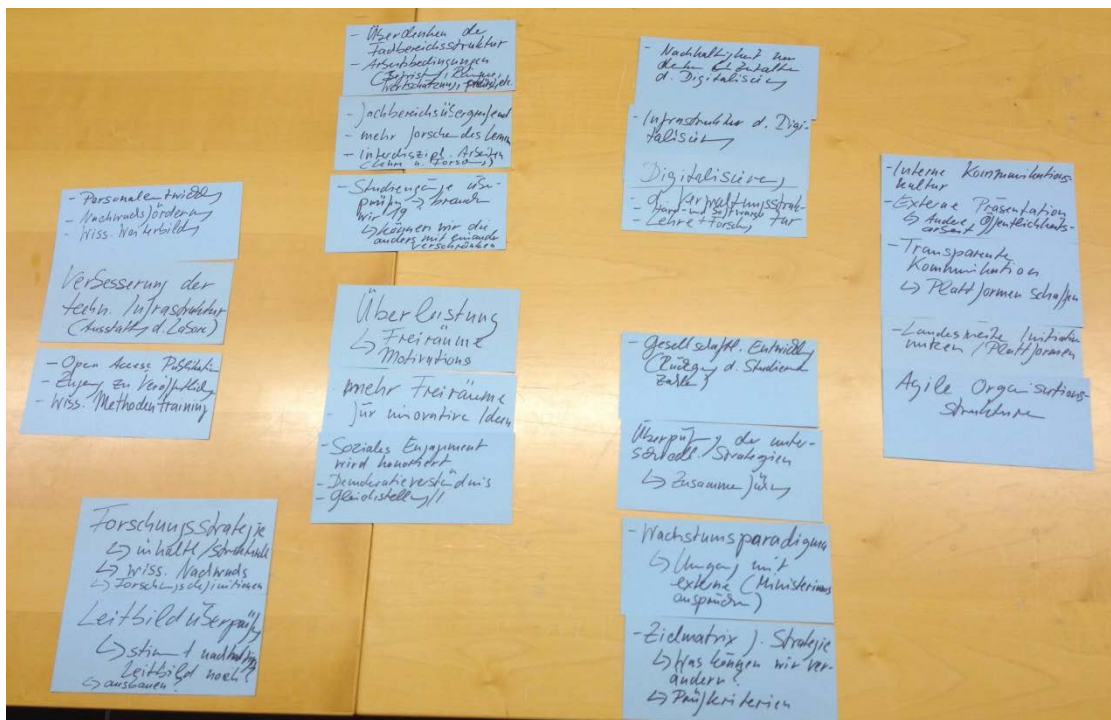 - Personalentwicklg
- Nachwuchsförderung
- Wiss. Weiterbildg
Verbesserung der
techn. Infrastruktur
(Ausstattg d. Labore)
- Open Access Publikation
- Zugang zu Veröffentlichg
- Wiss. Methodentraining
Forschungsstrategie
↳ inhalte/strukturelle
↳ wiss. Nachwuchs
↳ Forschungsdefinitionen
Leitbildüberprüfg
↳ stimmt nachhaltig
Leitbild noch?
↳ ausbauen?
- Überdenken der
Fachbereichsstruktur
- Arbeitsbedingungen
(Befrist., Räume,
Wertschätzung, etc.
- fachbereichsübergreifend
- mehr forschendes Lernen
- interdiszipl. Arbeiten
(Lehre u. Forschung)
- Studiengänge über-
prüfen → brauchen
wir 19?
↳ können wir die
anders miteinander
verschränken
Überlastung
↳ Freiräume
Motivations
mehr Freiräume
für innovative Ideen
- Soziales Engagement
wird honoriert
- Demokratieverständnis
- Gleichstellung!!
- Nachhaltigkeit
d. Digitalisierung
- Infrastruktur d. Digi-
talisierung
Digitalisierung
d. Verwaltungsstruk-
Hard- und Software tur
- Lehre + Forschung
- gesellschaftl. Entwicklg
(Rückgang d. Studierend
zahlen)
Überprüfung der unter-
schiedl. Strategien
↳ Zusammenführung
- Wachstumsparadigma
↳ Umgang mit
externe (Ministeriums
ansprüchen)
- Zielmatrix f. Strategie
↳ Was können wir ver-
ändern?
↳ Prüfkriterien
- Interne Kommunikations-
kultur
- Externe Präsentation
↳ Andere Öffentlichkeits-
arbeit
- Transparente
Kommunikation
↳ Plattformen schaffen
- Landesweite Initiativen
nutzen / Plattformen
Agile Organisations-
strukturen